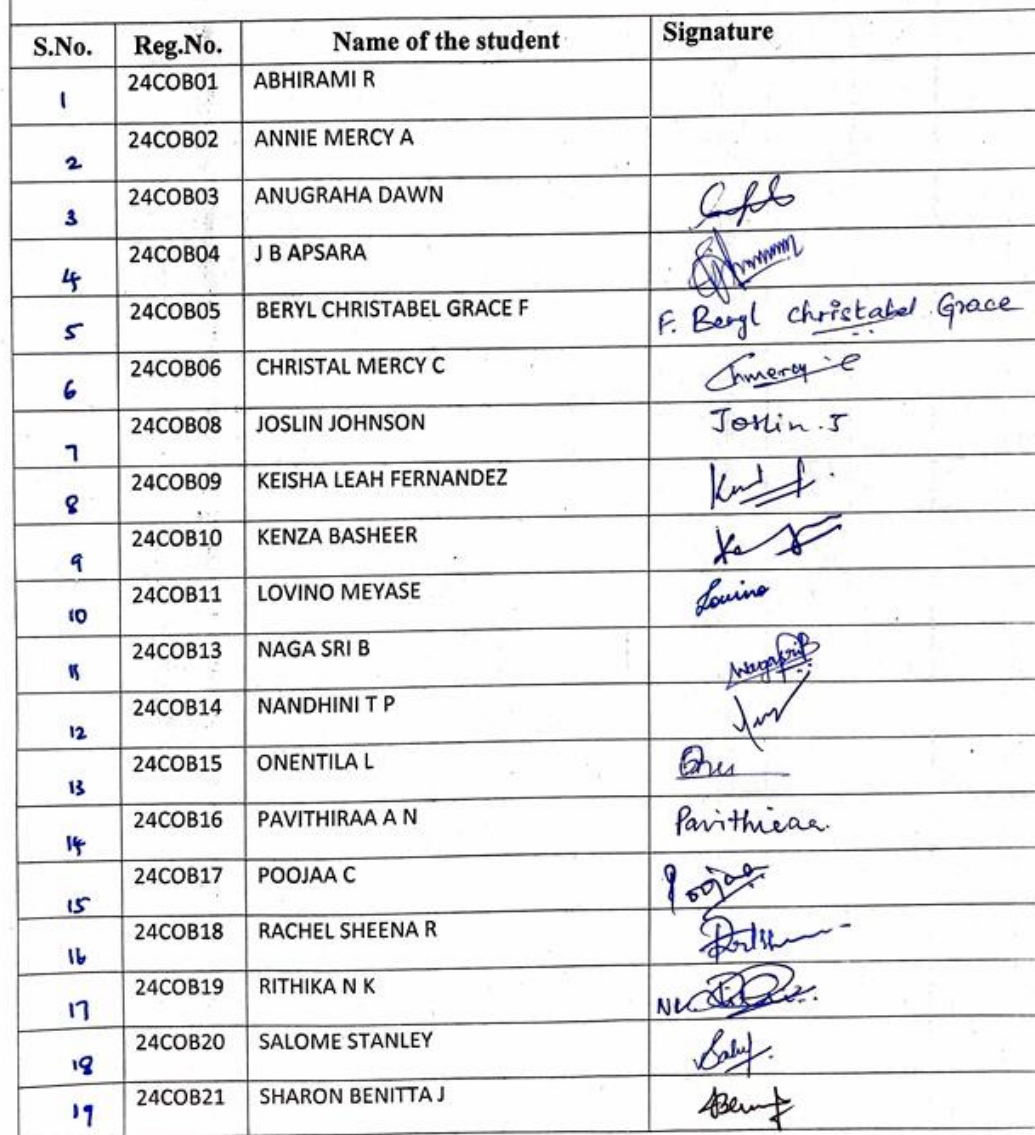 S.No. Reg.No. Name of the student Signature
1 24COB01 ABHIRAMI R
2 24COB02 ANNIE MERCY A
3 24COB03 ANUGRAHA DAWN
4 24COB04 J B APSARA
5 24COB05 BERYL CHRISTABEL GRACE F F. Beryl Christabel Grace
6 24COB06 CHRISTAL MERCY C Chmercy C
7 24COB08 JOSLIN JOHNSON Joslin . J
8 24COB09 KEISHA LEAH FERNANDEZ
9 24COB10 KENZA BASHEER
10 24COB11 LOVINO MEYASE Lovino
11 24COB13 NAGA SRI B Nagasri B
12 24COB14 NANDHINI T P
13 24COB15 ONENTILA L
14 24COB16 PAVITHIRAA A N Pavithiraa
15 24COB17 POOJAA C Poojaa
16 24COB18 RACHEL SHEENA R
17 24COB19 RITHIKA N K
18 24COB20 SALOME STANLEY
19 24COB21 SHARON BENITTA J